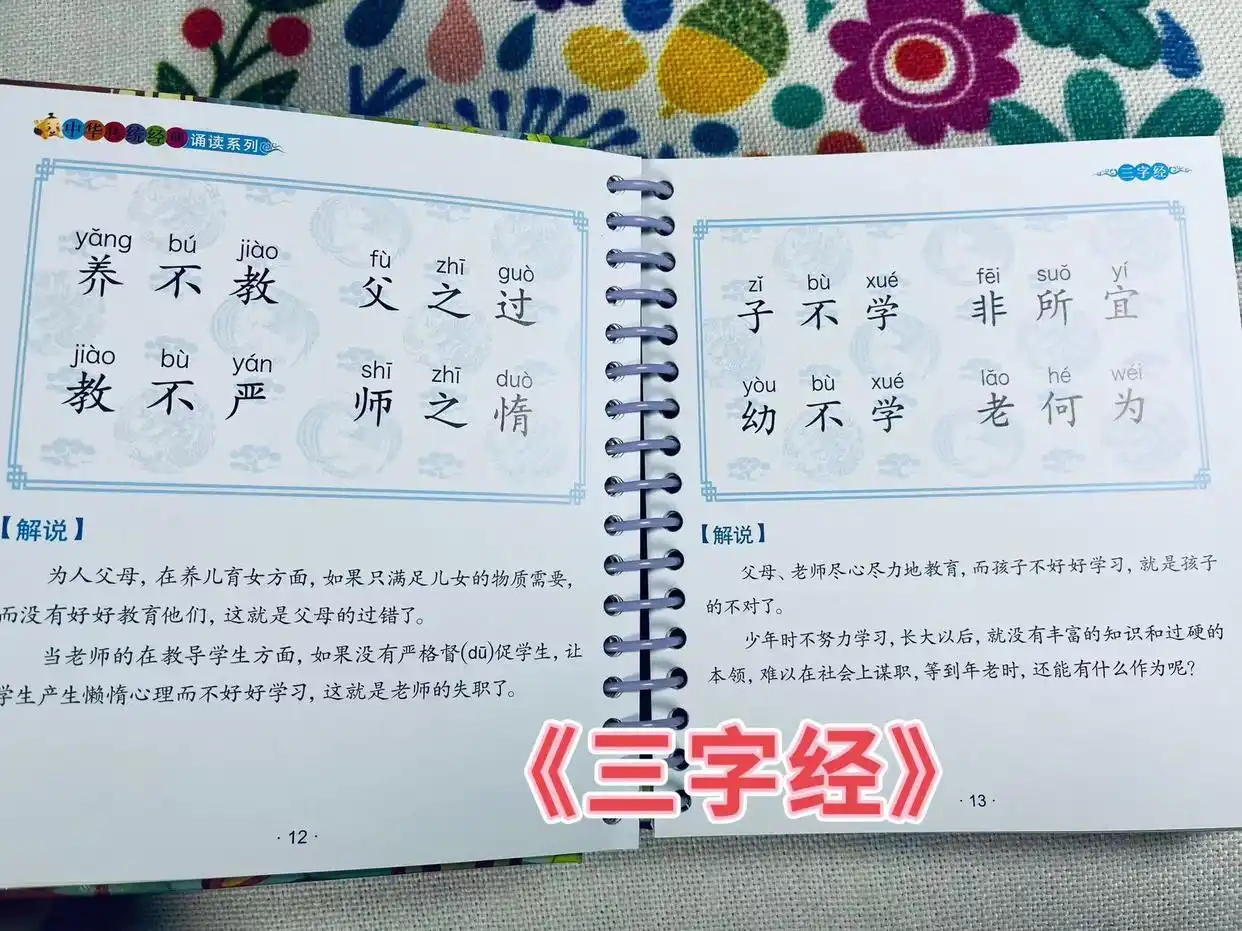 中华传统经典诵读系列
yǎng bú jiào fù zhī guò
养不教 父之过
jiào bù yán shī zhī duò
教不严 师之惰
【解说】
为人父母,在养儿育女方面,如果只满足儿女的物质需要,
而没有好好教育他们,这就是父母的过错了。
当老师的在教导学生方面,如果没有严格督(dū)促学生,让
学生产生懒惰心理而不好好学习,这就是老师的失职了。
·12·
三字经
zǐ bù xué fēi suǒ yí
子不学 非所宜
yòu bù xué lǎo hé wéi
幼不学 老何为
【解说】
父母、老师尽心尽力地教育,而孩子不好好学习,就是孩子
的不对了。
少年时不努力学习,长大以后,就没有丰富的知识和过硬的
本领,难以在社会上谋职,等到年老时,还能有什么作为呢?
·13·
《三字经》